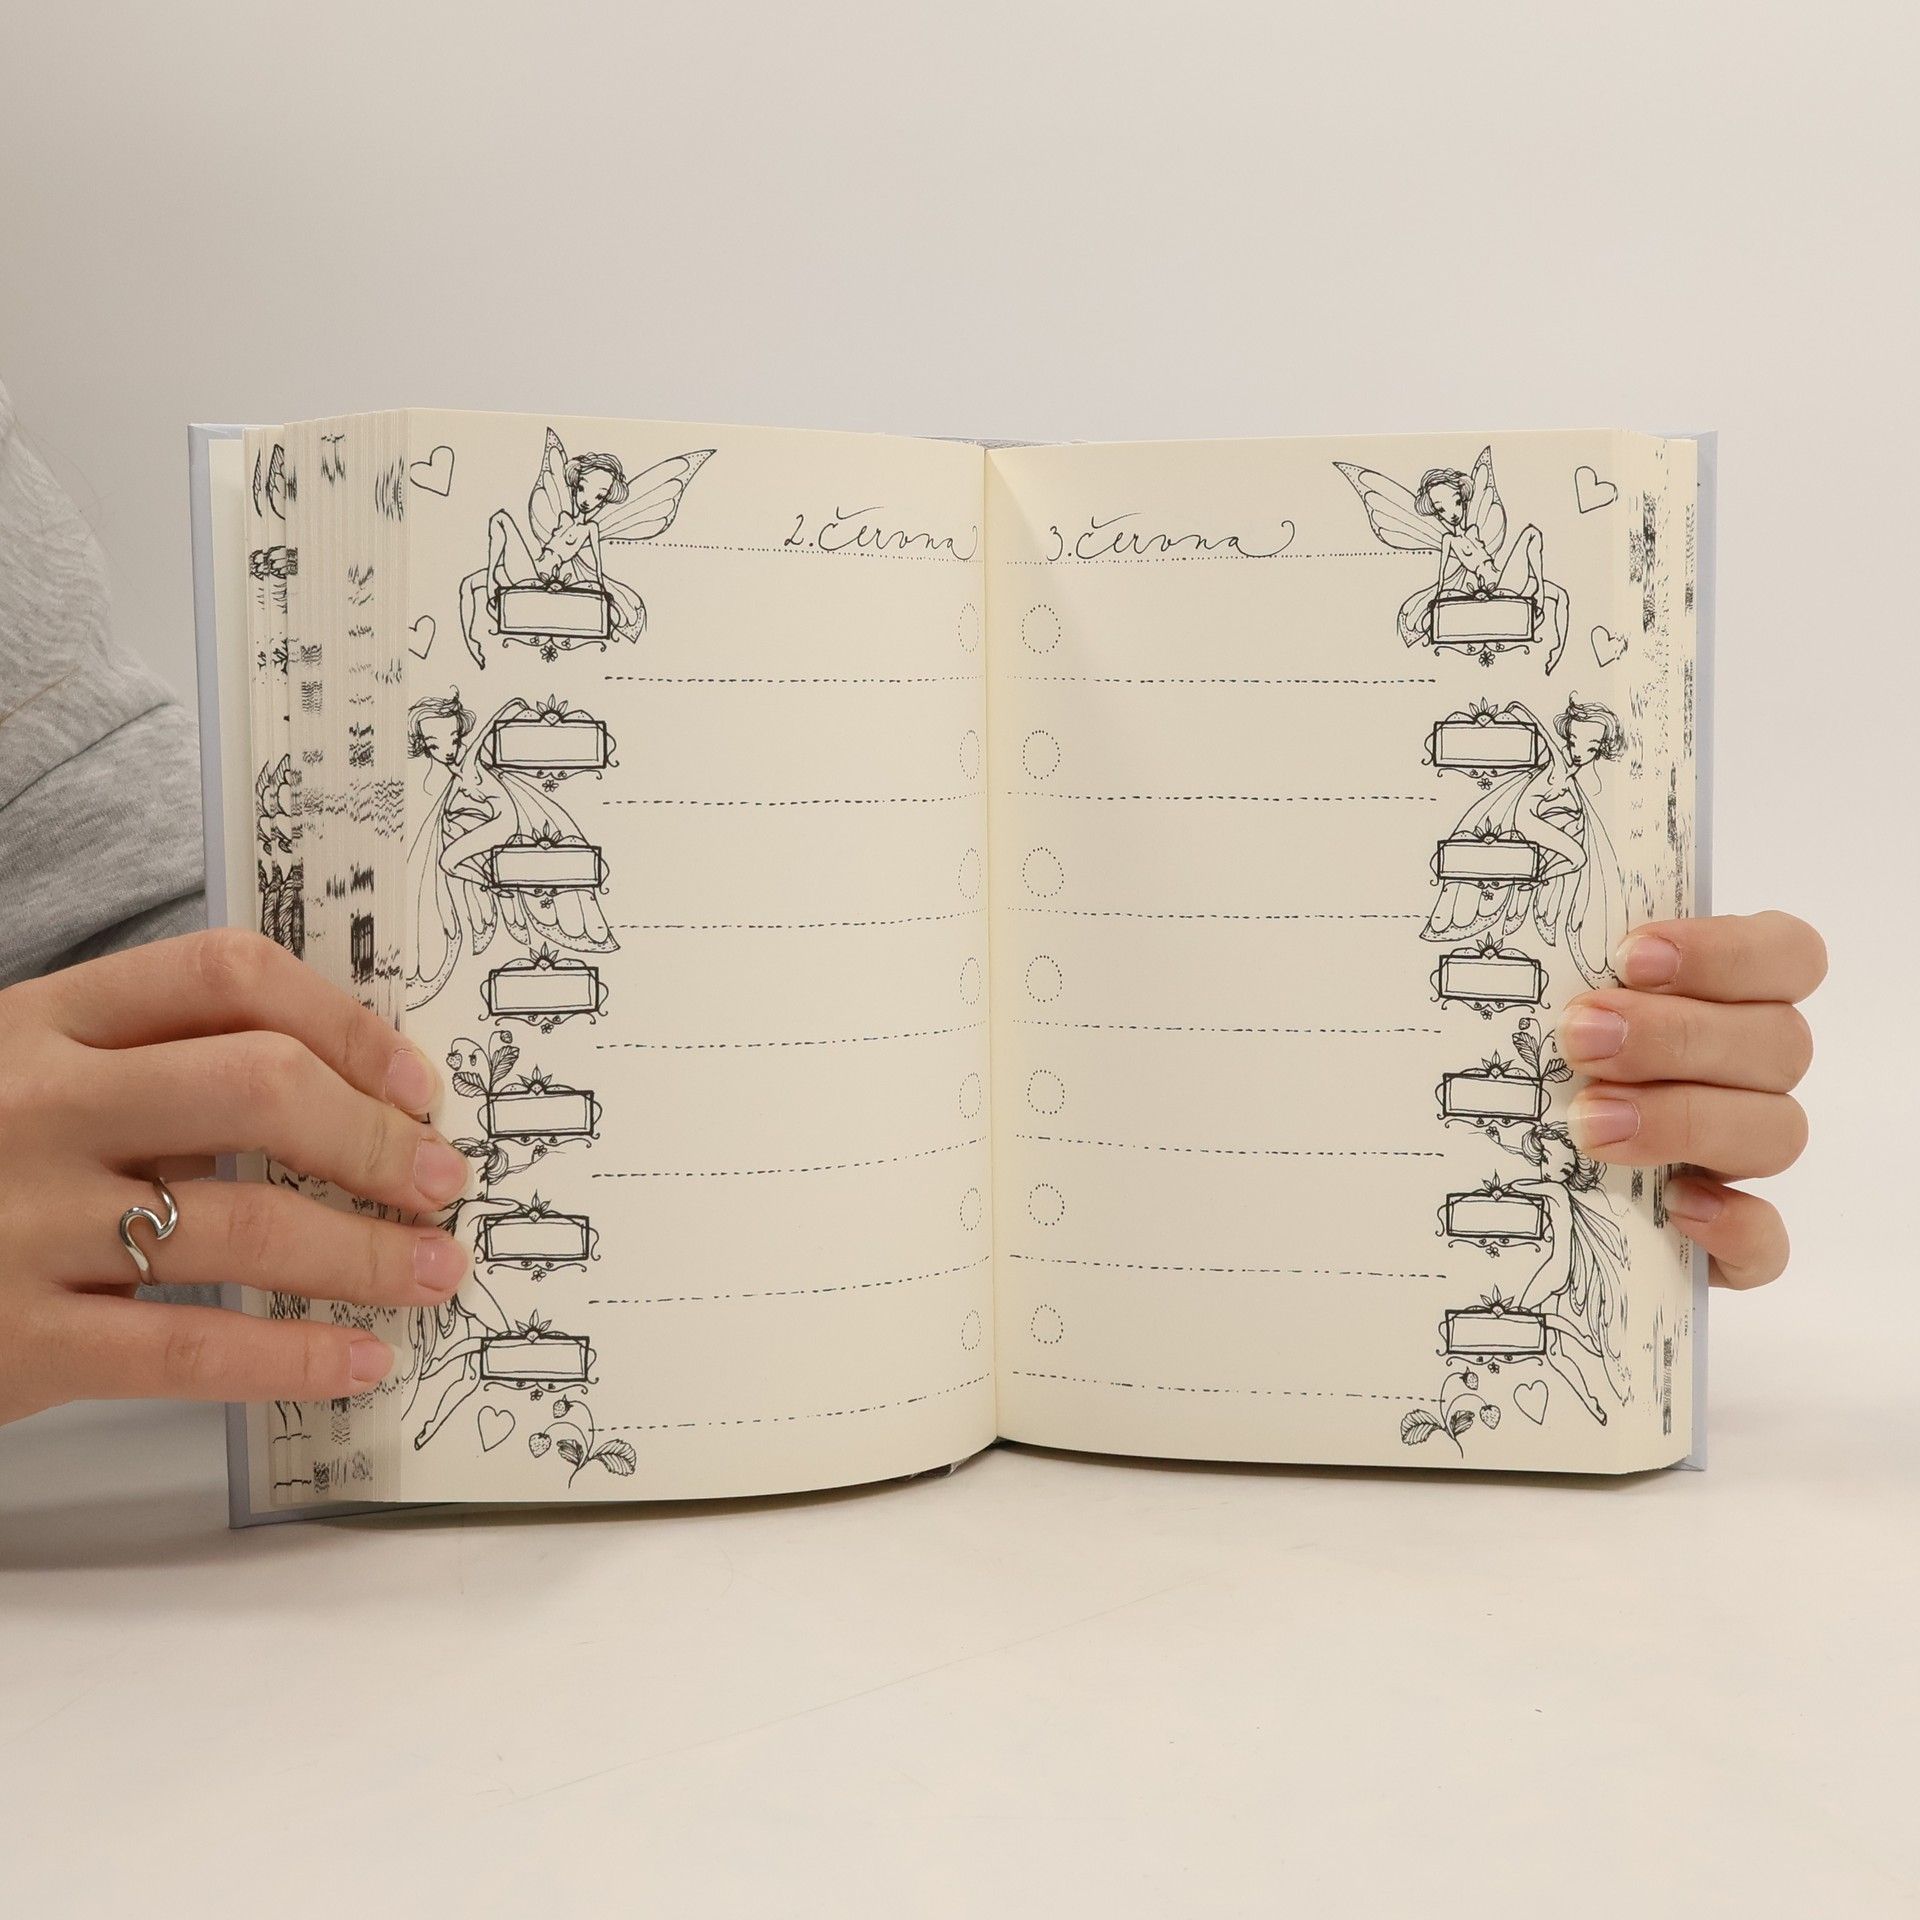 2. června
3. června